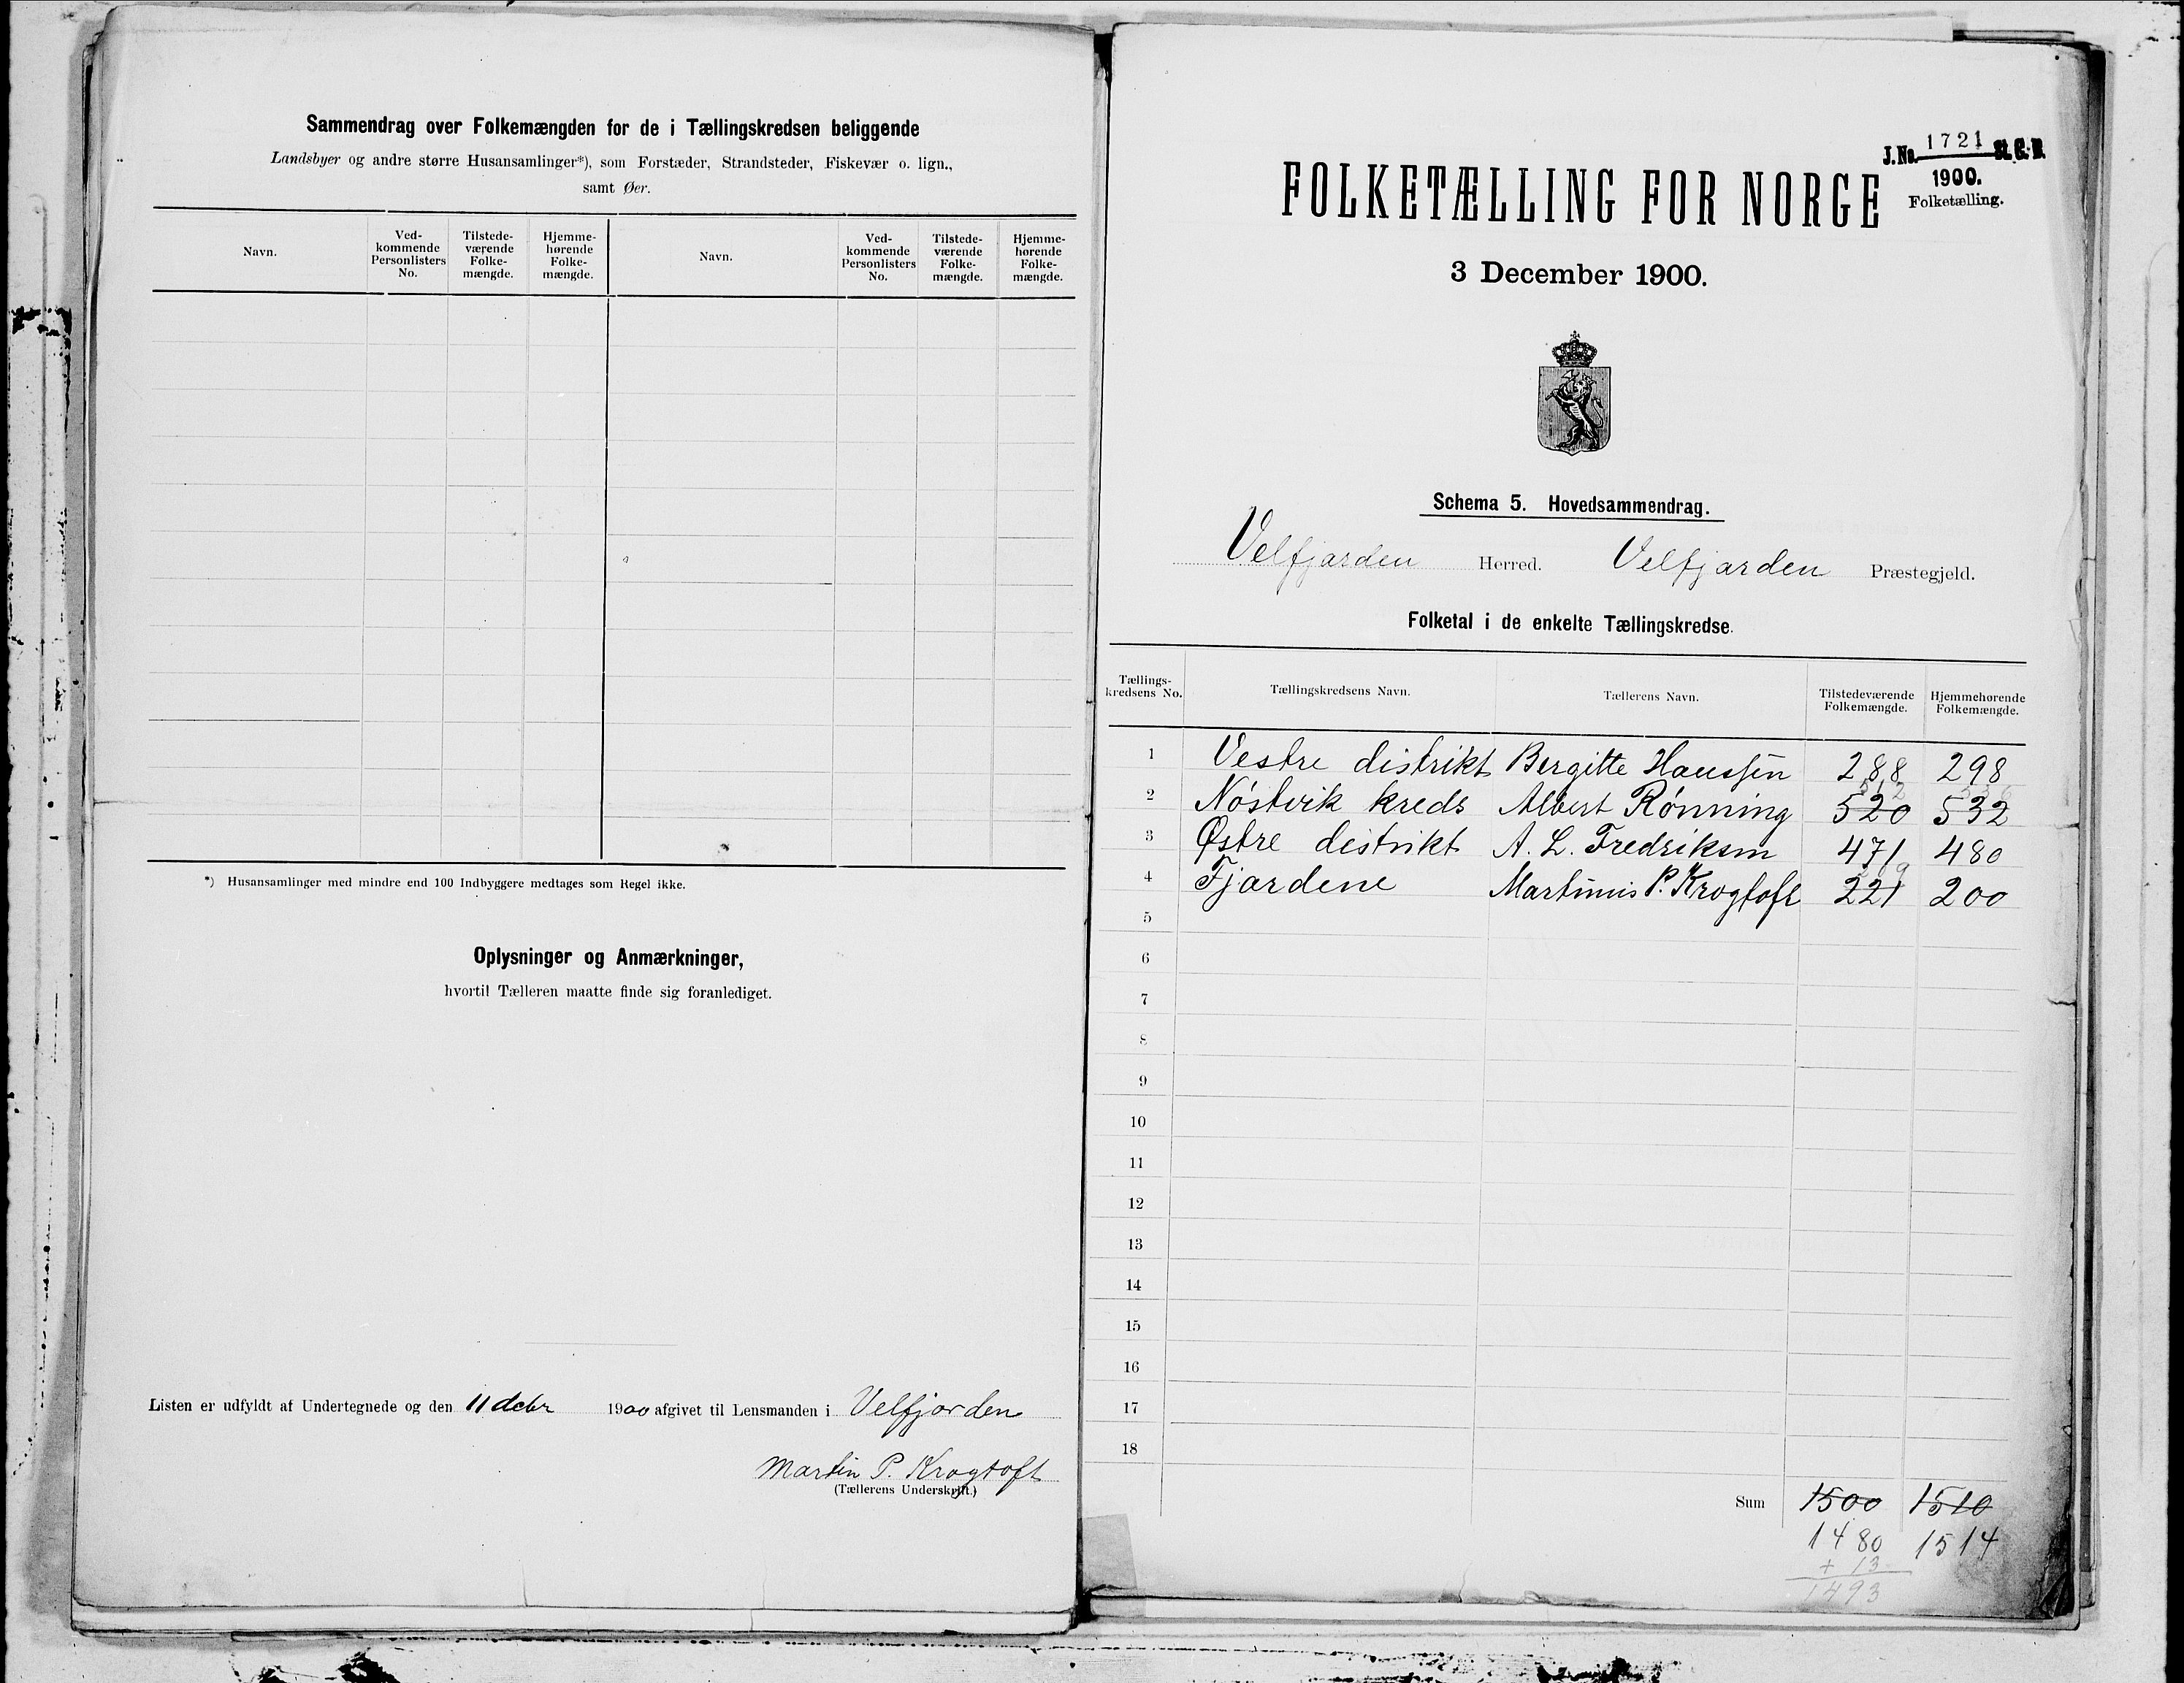 Sammendrag over Folkemængden for de i Tællingskredsen beliggende
Landsbyer og andre større Husansamlinger*), som Forstæder, Strandsteder, Fiskevær o. lign.,
samt Øer.
Navn. Ved-kommende Personlisters No. Tilstede-værende Folke-mængde. Hjemme-hørende Folke-mængde. Navn. Ved-kommende Personlisters No. Tilstede-værende Folke-mængde. Hjemme-hørende Folke-mængde.
*) Husansamlinger med mindre end 100 Indbyggere medtages som Regel ikke.
Oplysninger og Anmærkninger,
hvortil Tælleren maatte finde sig foranlediget.
Listen er udfyldt af Undertegnede og den 11 debr 1900 afgivet til Lensmanden i Velfjorden
Martin P. Krogtoft
(Tællerens Underskrift.)
J. No. 1721 St. C. B.
1900.
Folketælling.
FOLKETÆLLING FOR NORGE
3 December 1900.
Schema 5. Hovedsammendrag.
Velfjorden Herred. Velfjorden Præstegjeld.
Folketal i de enkelte Tællingskredse.
Tællings-kredsens No. Tællingskredsens Navn. Tællerens Navn. Tilstedeværende Folkemængde. Hjemmehørende Folkemængde.
1 Vestre distrikt Bergitte Haussen 288 298
512
2 Nøstvik kreds Albert Rønning 520 532
3 Østre distrikt A. L. Fredriksen 471 480
209
4 Fjordene Martinus P. Krogtoft 221 200
5
6
7
8
9
10
11
12
13
14
15
16
17
18
Sum 1500 1510
1480 1514
+ 13
1493